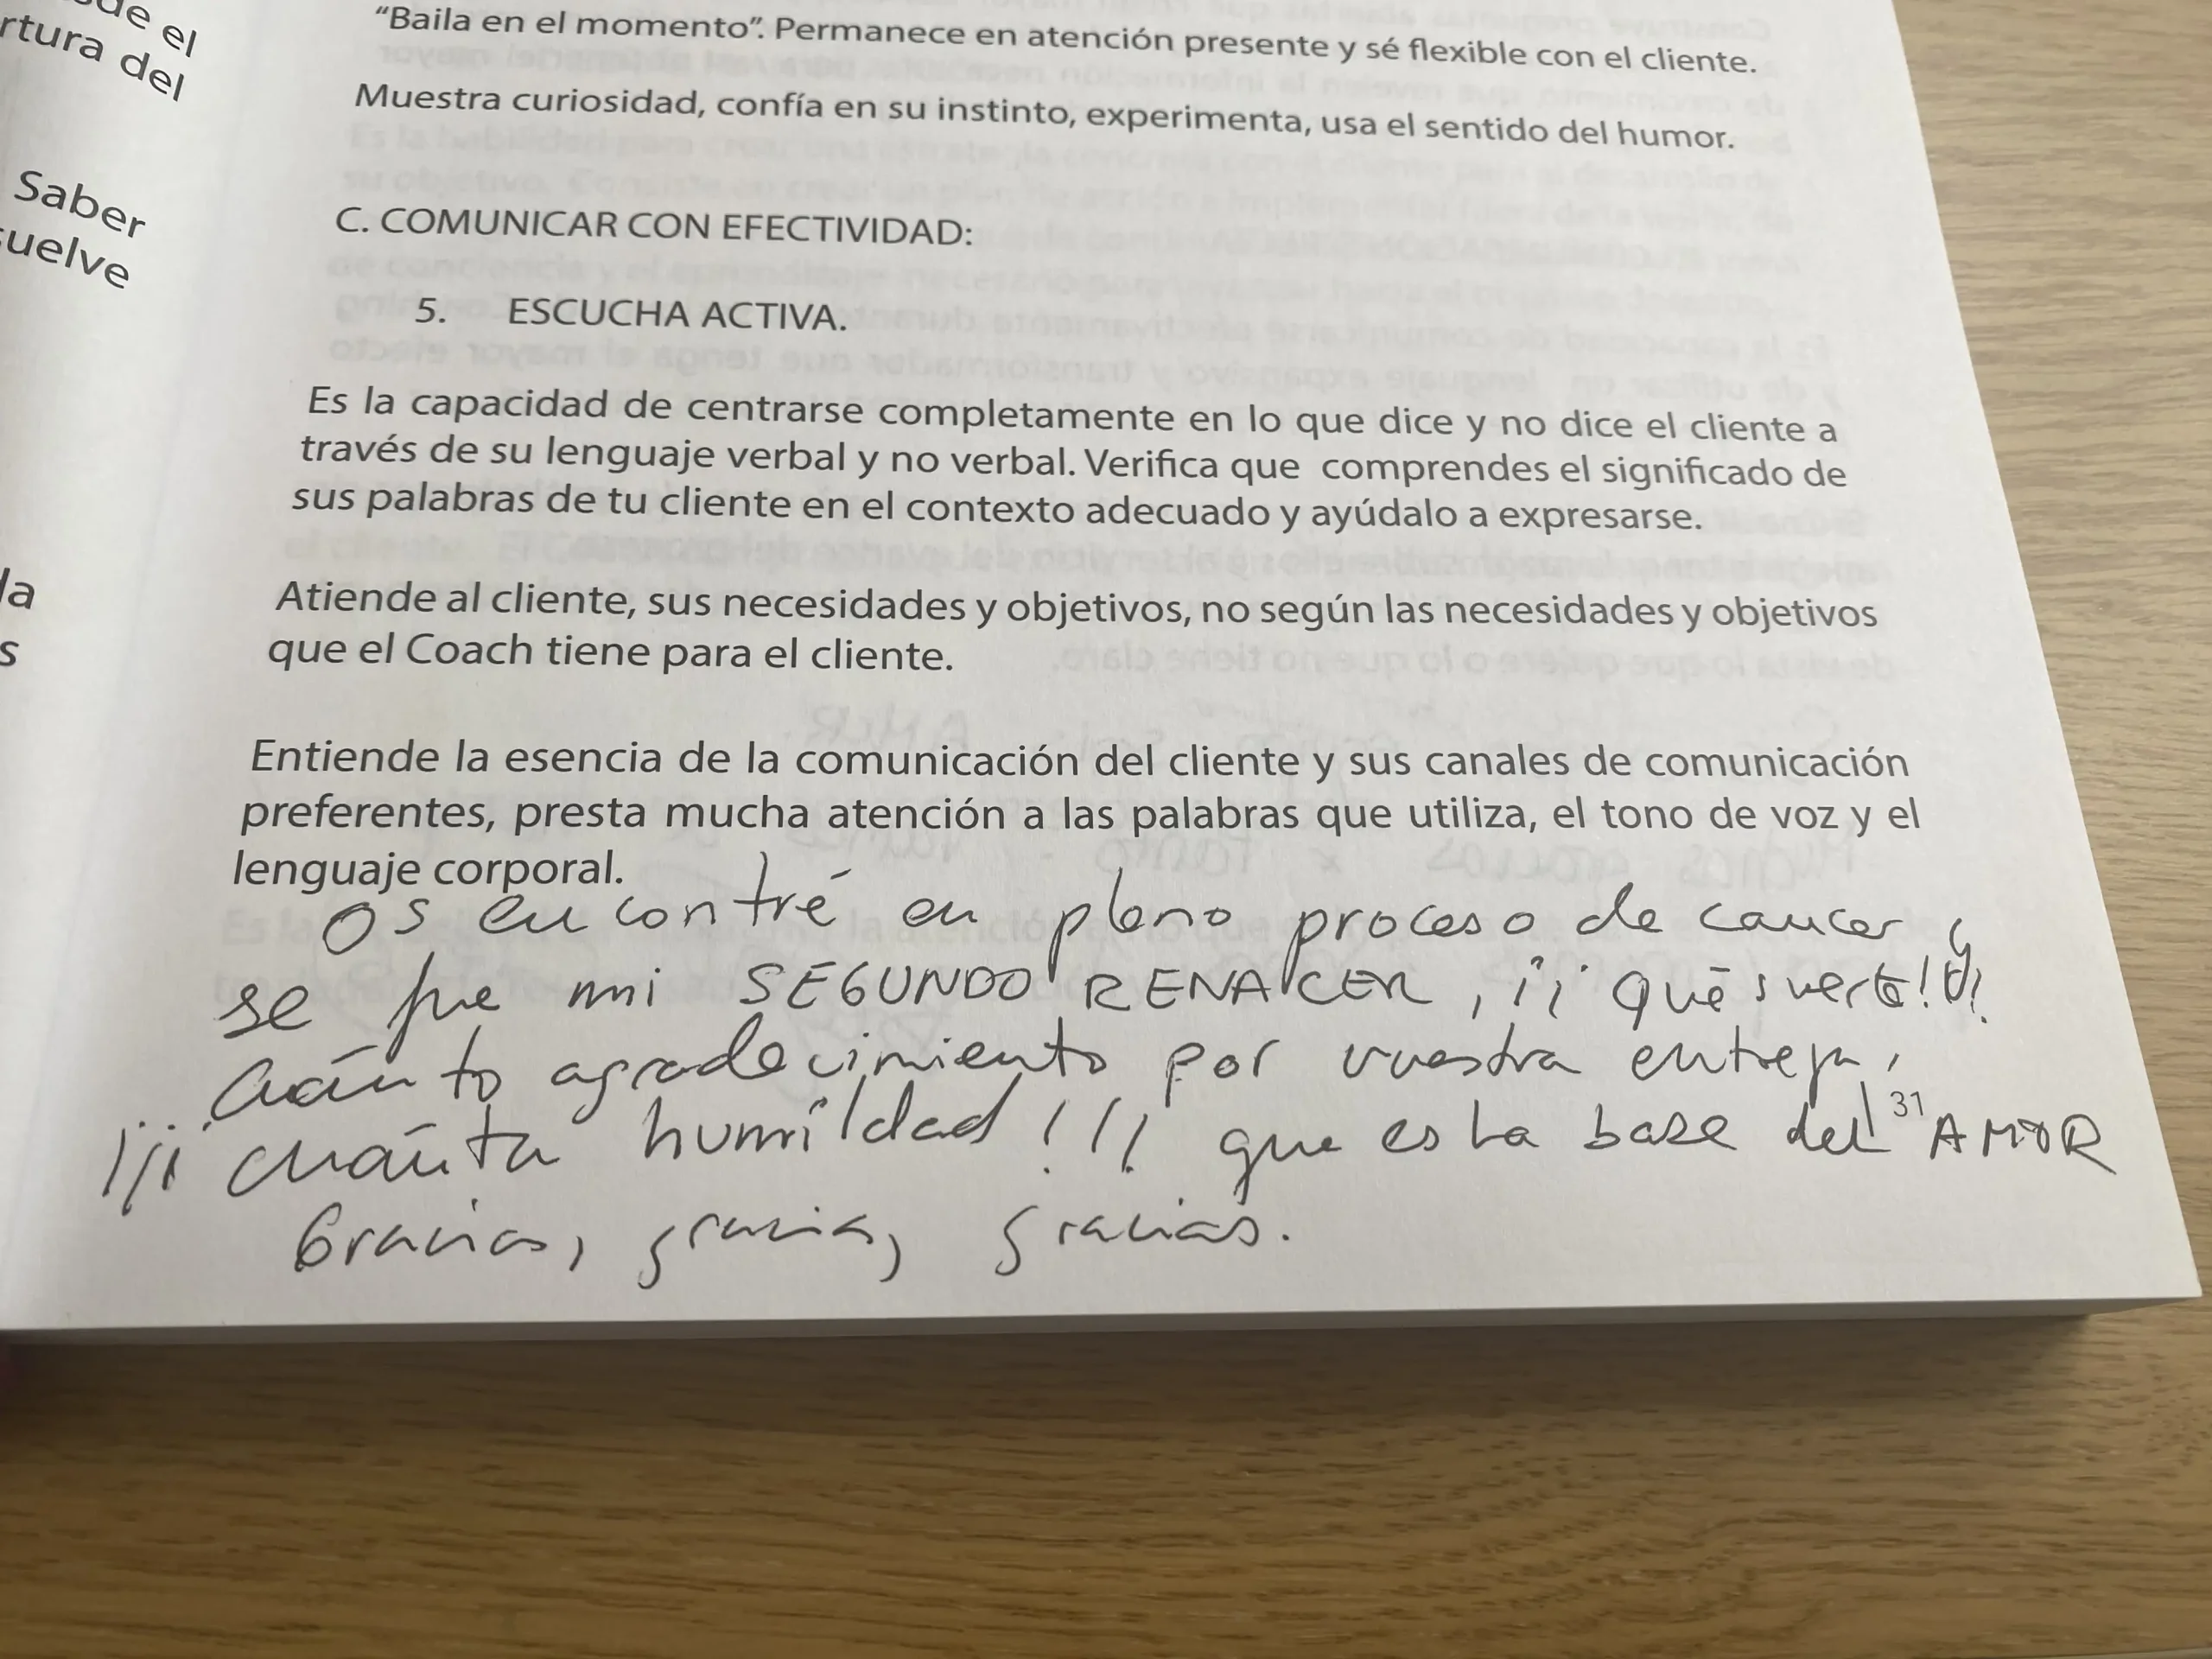 de el
rtura del
Saber
uelve
la
s
“Baila en el momento”. Permanece en atención presente y sé flexible con el cliente.
Muestra curiosidad, confía en su instinto, experimenta, usa el sentido del humor.
C. COMUNICAR CON EFECTIVIDAD:
5. ESCUCHA ACTIVA.
Es la capacidad de centrarse completamente en lo que dice y no dice el cliente a
través de su lenguaje verbal y no verbal. Verifica que comprendes el significado de
sus palabras de tu cliente en el contexto adecuado y ayúdalo a expresarse.
Atiende al cliente, sus necesidades y objetivos, no según las necesidades y objetivos
que el Coach tiene para el cliente.
Entiende la esencia de la comunicación del cliente y sus canales de comunicación
preferentes, presta mucha atención a las palabras que utiliza, el tono de voz y el
lenguaje corporal.
Os encontré en pleno proceso de cancer y
se fue mi SEGUNDO RENACER, ¡¡ Qué suerte!!
Cuánto agradecimiento por vuestra entrega,
¡¡¡ cuánta humildad!!! que es La base del AMOR
31
Gracias, gracias, gracias.